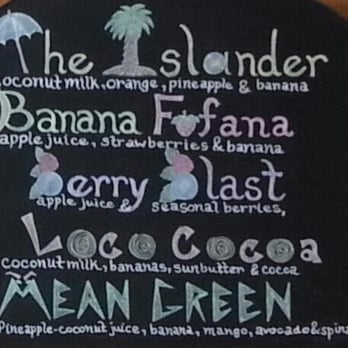 The Islander
coconut milk, orange, pineapple & banana
Banana Fofana
apple juice, strawberries & banana
Berry Blast
apple juice & seasonal berries,
Loco Cocoa
coconut milk, bananas, sunbutter & cocoa
MEAN GREEN
Pineapple-coconut juice, banana, mango, avocado & spina